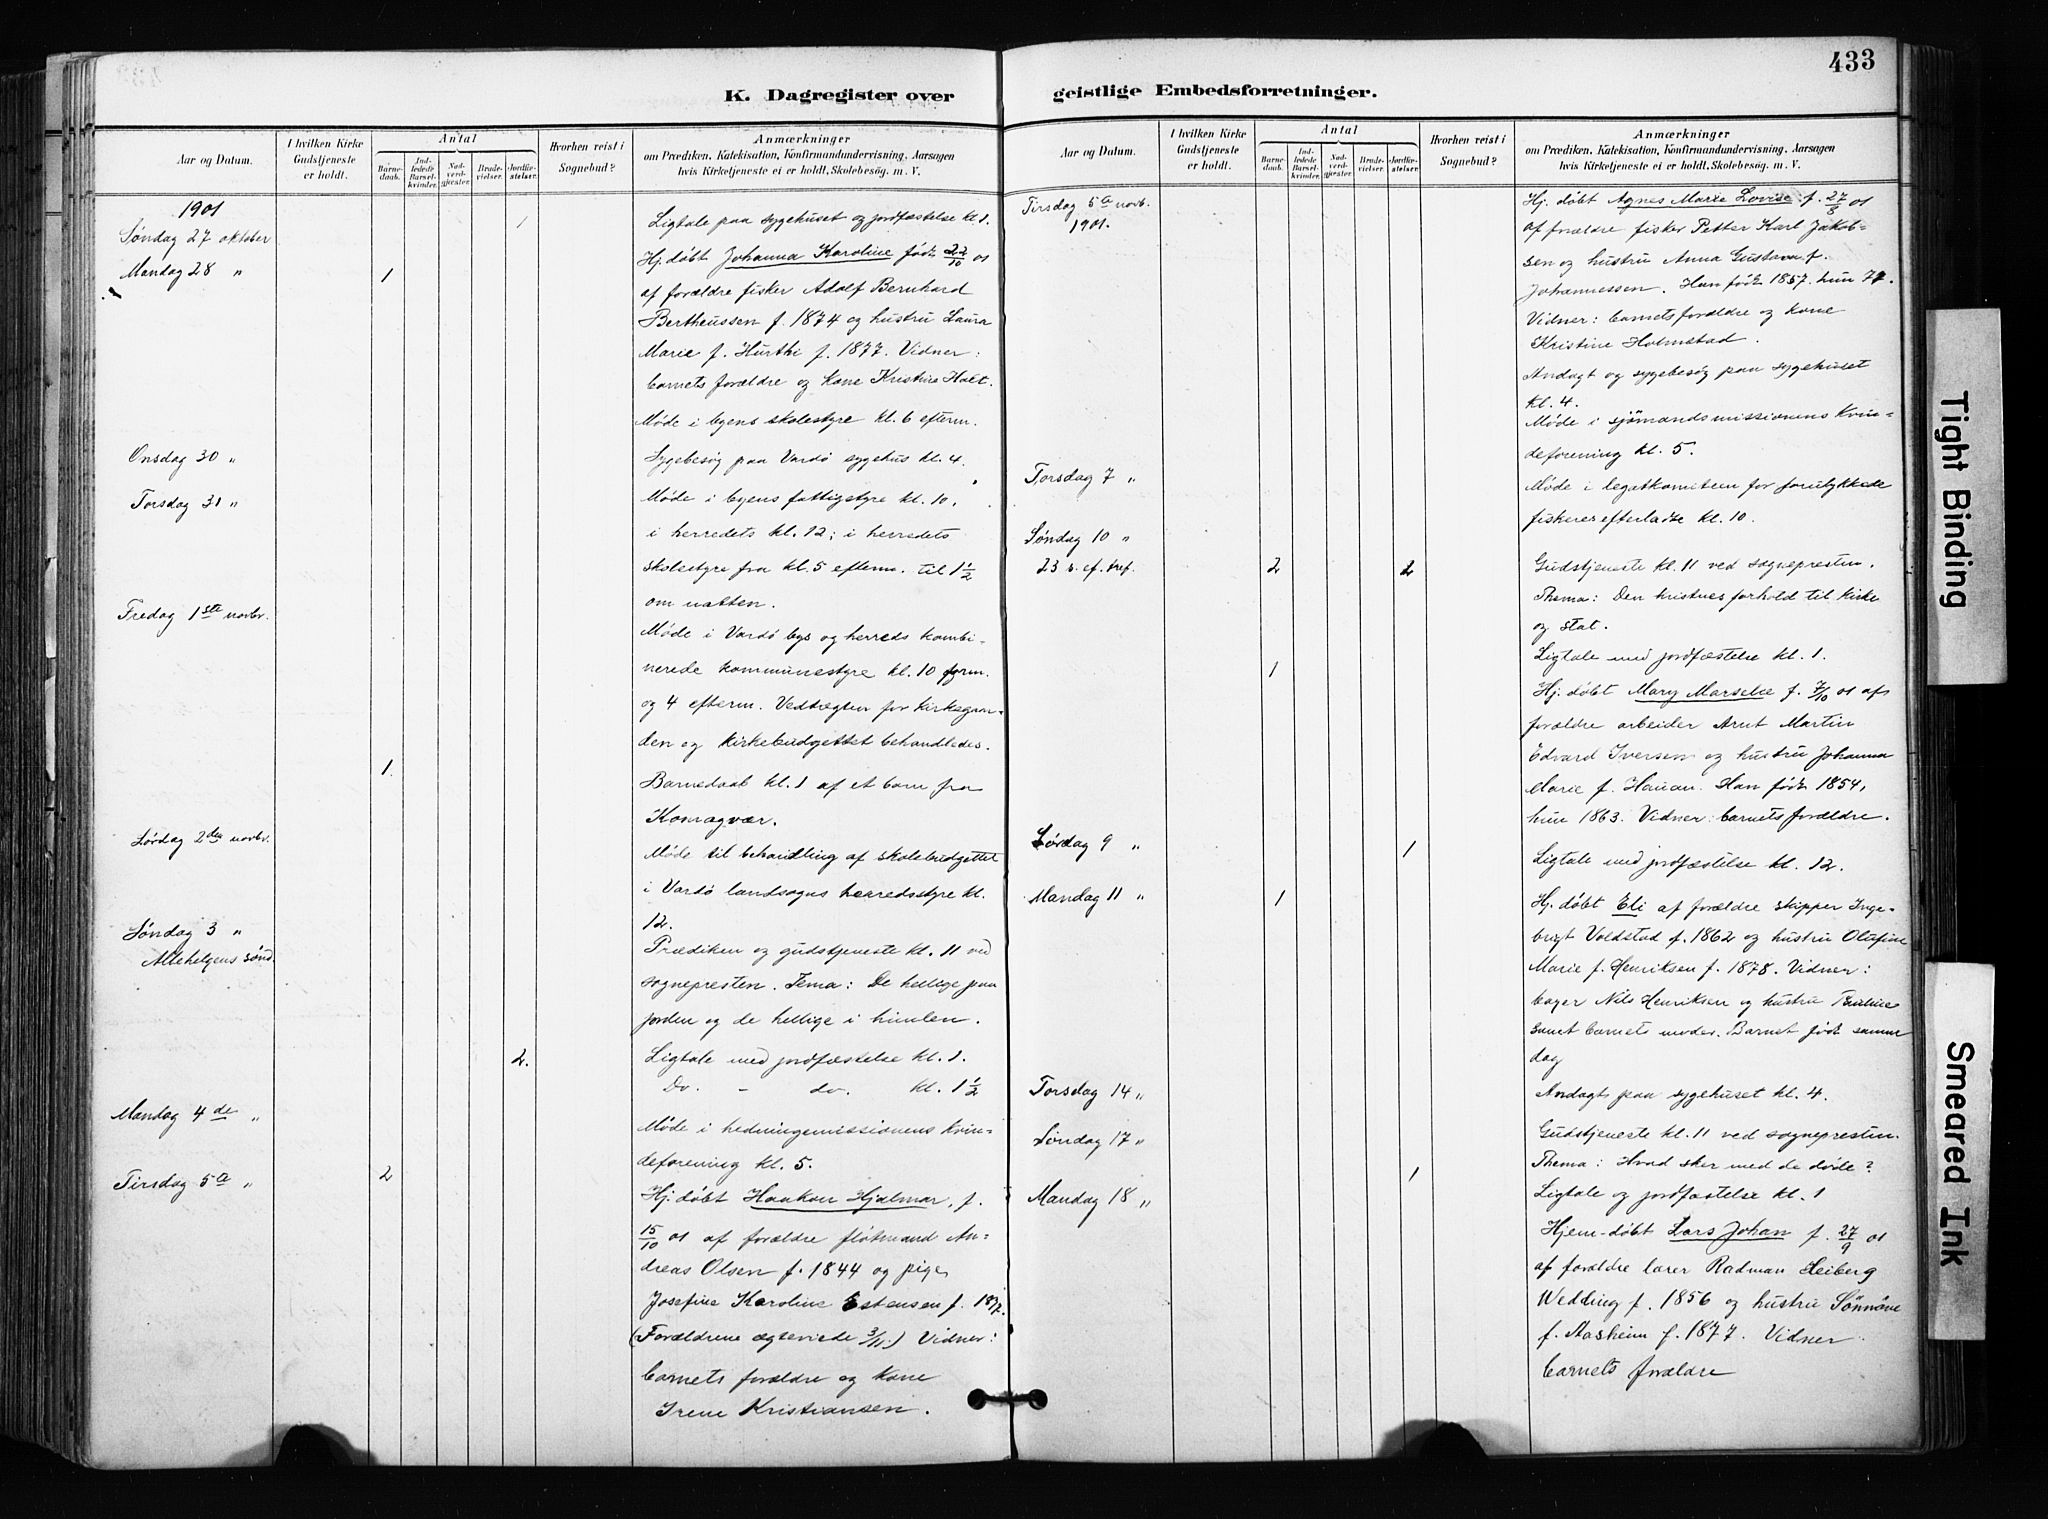 433
K. Dagregister over
Aar og Datum.
I hvilken Kirke Gudstjeneste er holdt.
Antal
Barnedaab.
Indledede Barselkvinder.
Nadverdgjæster.
Brudevielser.
Jordfæstelser.
Hvorhen reist i Sognebud?
Anmærkninger
om Prædiken, Katekisation, Konfirmandundervisning, Aarsagen
hvis Kirketjeneste ei er holdt, Skolebesøg. m. V.
1901
Søndag 27 oktober
1
Ligtale paa sygehuset og jordfæstelse kl. 1.
Mandag 28 "
1
Hj. døbt Johanna Karoline født 22/10 01
af forældre fisker Adolf Bernhard
Bertheussen f. 1874 og hustru Laura
Marie f. Hurthi f. 1877. Vidner:
barnets forældre og kone Kristine Holt.
Møde i byens skolestyre kl. 6 efterm.
Onsdag 30 "
Sygebesøg paa Vardø sygehus kl. 4.
Torsdag 31 "
Møde i byens fattigstyre kl. 10,
i herredets kl. 12; i herredets
skolestyre fra kl. 5 efterm. til 1 1/2
om natten.
Fredag 1ste novbr.
Møde i Vardø bys og herreds kombi-
nerede kommunestyre kl. 10 form.
og 4 efterm. Vedtægten for kirkegaar-
den og kirkebudgettet behandledes.
1.
Barnedaab kl. 1 af et barn fra
Komagvær.
Lørdag 2den novbr.
Møde til behandling af skolebudgettet
i Vardø landsogns herredsstyre kl.
12.
Søndag 3 "
Allehelgens sønd.
Prædiken og gudstjeneste kl. 11 ved
sognepresten. Tema: De hellige paa
jorden og de hellige i himlen.
2.
Ligtale med jordfæstelse kl. 1.
Do. - do. kl. 1 1/2
Mandag 4de "
Møde i hedningemissionens kvin-
deforening kl. 5.
Tirsdag 5te "
2
Hj. døbt Haakon Hjalmar, f.
15/10 01 af forældre fløtmand An-
dreas Olsen f. 1844 og pige
Josefine Karoline Estensen f.
(Forældrene ægteviede 3/11.) Vidner:
barnets forældre og kone
Irene Kristiansen.
geistlige Embedsforretninger.
Aar og Datum.
I hvilken Kirke Gudstjeneste er holdt.
Antal
Barnedaab.
Indledede Barselkvinder.
Nadverdgjæster.
Brudevielser.
Jordfæstelser.
Hvorhen reist i Sognebud?
Anmærkninger
om Prædiken, Katekisation, Konfirmandundervisning, Aarsagen
hvis Kirketjeneste ei er holdt, Skolebesøg. m. V.
Tirsdag 5te novb.
1901.
Hj. døbt Agnes Marie Lovise f. 27/8 01
af forældre fisker Petter Karl Jakob-
sen og hustru Anna Gustava f.
Johannessen. Han født 1857. hun 74.
Vidner: barnets forældre og kone
Kristine Holmstad.
Andagt og sygebesøg paa sygehuset
kl. 4.
Møde i sjömandsmissionens kvin-
deforening kl. 5.
Torsdag 7 "
Møde i legatkomiteen for forulykkede
fiskeres efterladte kl. 10.
Søndag 10 "
23 s. ef. tref.
2
2
Gudstjeneste kl. 11 ved sognepresten.
Thema: Den kristnes forhold til kirke
og stat.
Ligtale med jordfæstelse kl. 1.
1
Hj. døbt Mary Marselie f. 7/10 01 af
forældre arbeider Arnt Martin
Edvard Iversen og hustru Johanna
Marie f. Hauan. Han født 1854,
hun 1863. Vidner: barnets forældre.
Lørdag 9 "
1
Ligtale med jordfæstelse kl. 12.
Mandag 11 "
1
Hj. døbt Eli af forældre skipper Inge-
brigt Voldstad f. 1862 og hustru Olufine
Marie f. Henriksen f. 1878. Vidner:
bager Nils Henriksen og hustru
samt barnets moder. Barnet født samme
dag
Torsdag 14 "
Andagt paa sygehuset kl. 4.
Søndag 17 "
Gudstjeneste kl. 11 ved sognepresten.
Thema: Hvad sker med de døde?
1
Ligtale og jordfæstelse kl. 1
Mandag 18 "
Hjem-døbt Lars Johan f. 27/9 01
af forældre lærer Radman Seiberg
Wedding f. 1856 og hustru Sønnøve
f. Aasheim f. 1877. Vidner
barnets forældre
Tight Binding
Smeared Ink